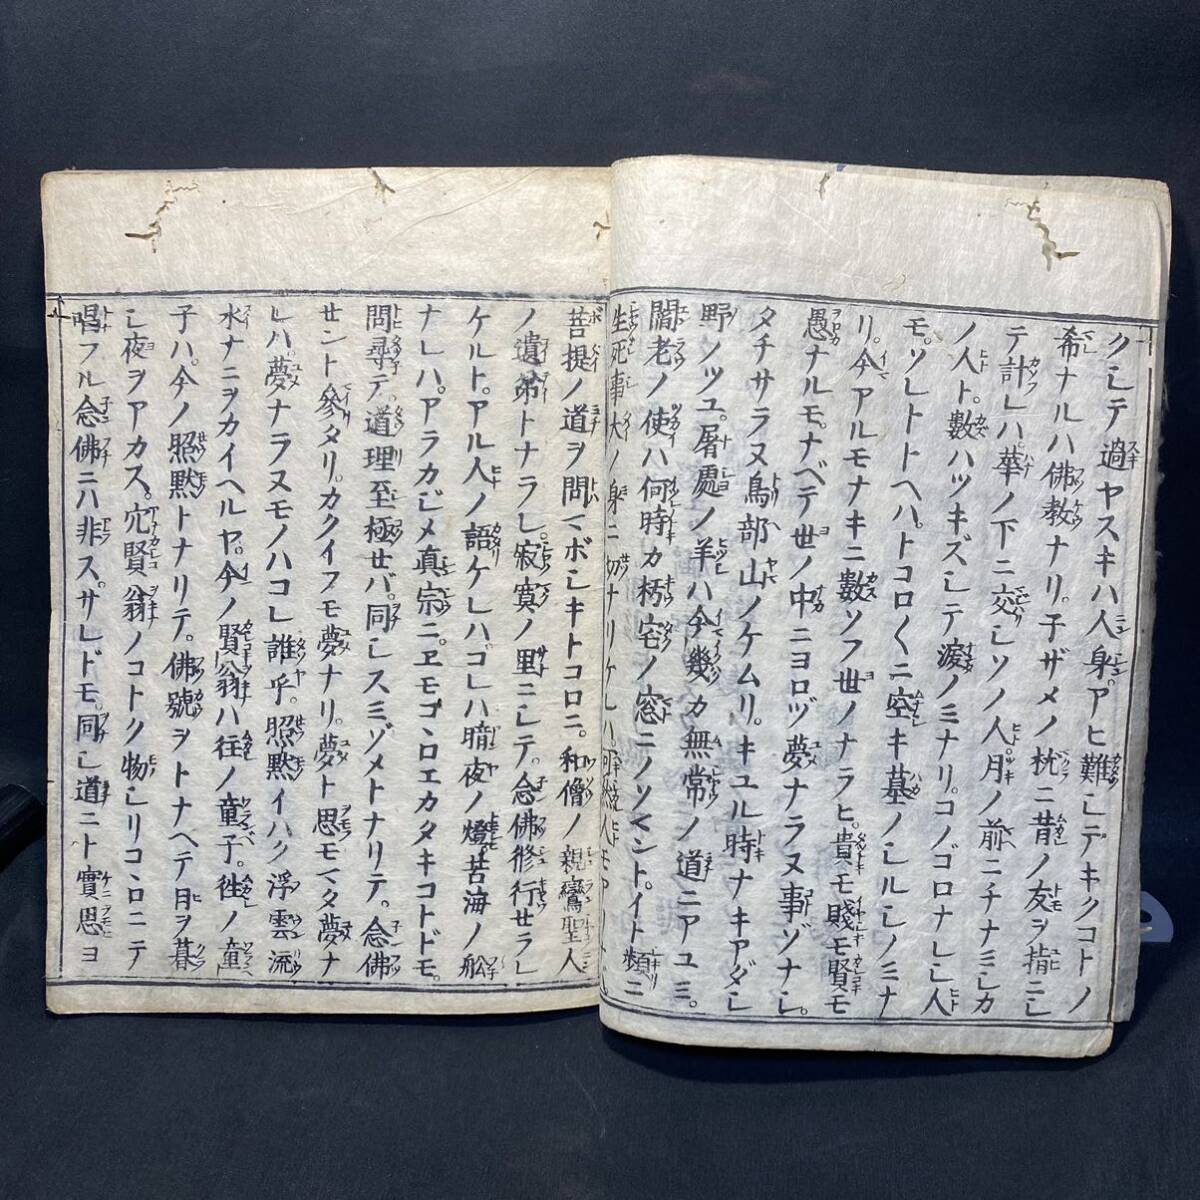 クシテ過ヤスキハ人身。アヒ難シテキクコトノ
希ナルハ佛教ナリ。子ザメノ枕ニ昔ノ友ヲ指ニシ
テ計レハ。華ノ下ニ交シソノ人月ノ前ニチナミシカ
ノ人ト。數ハツキズシテ涙ノミナリ。コノゴロナシシ人
モ。ソレトトヘハ。トコロ〱ニ空キ墓ノシルシノミナ
リ。今アルモナキニ數ソフ世ノナラヒ。貴モ賤モ賢モ
愚ナルモ。ナベテ世ノ中ニヨロヅ夢ナラヌ事ゾナシ。
タチサラヌ鳥部山ノケムリ。キユル時ナキアダシ
野ノツユ。屠處ノ羊ハ今幾カ無常ノ道ニアユミ。
閻老ノ使ハ何時カ朽宅ノ窓ニノソマントイト類ニ
生死事大ノ身ニ切ナリケレハ。何人モ
菩提ノ道ヲ問マボシキトコロニ。和僧ノ親鸞聖人
ノ遺弟トナラレ。寂寞ノ里ニシテ。念佛修行セラレ
ケルト。アル人ノ語ケレハ。コレハ暗夜ノ燈。苦海ノ舩
ナレハ。アラカシメ真宗ニ。ヱモゴヽロエカタキコトドモ。
問尋テ。道理至極セバ。同シスミゾメトナリテ。念佛
セント參タリ。カクイフモ夢ナリ。夢ト思モマタ夢ナ
レハ。夢ナラヌモノハコレ誰乎。照黙イハク浮雲流
水ナニヲカイヘルヤ。今ノ賢翁ハ往ノ童子。徃ノ童
子ハ。今ノ照黙トナリテ。佛號ヲトナヘテ日ヲ暮
シ夜ヲアカス。宂賢翁ノコトク物シリコヽロニテ
唱フル念佛ニハ非ス。サレドモ。同シ道ニト實思ヨ